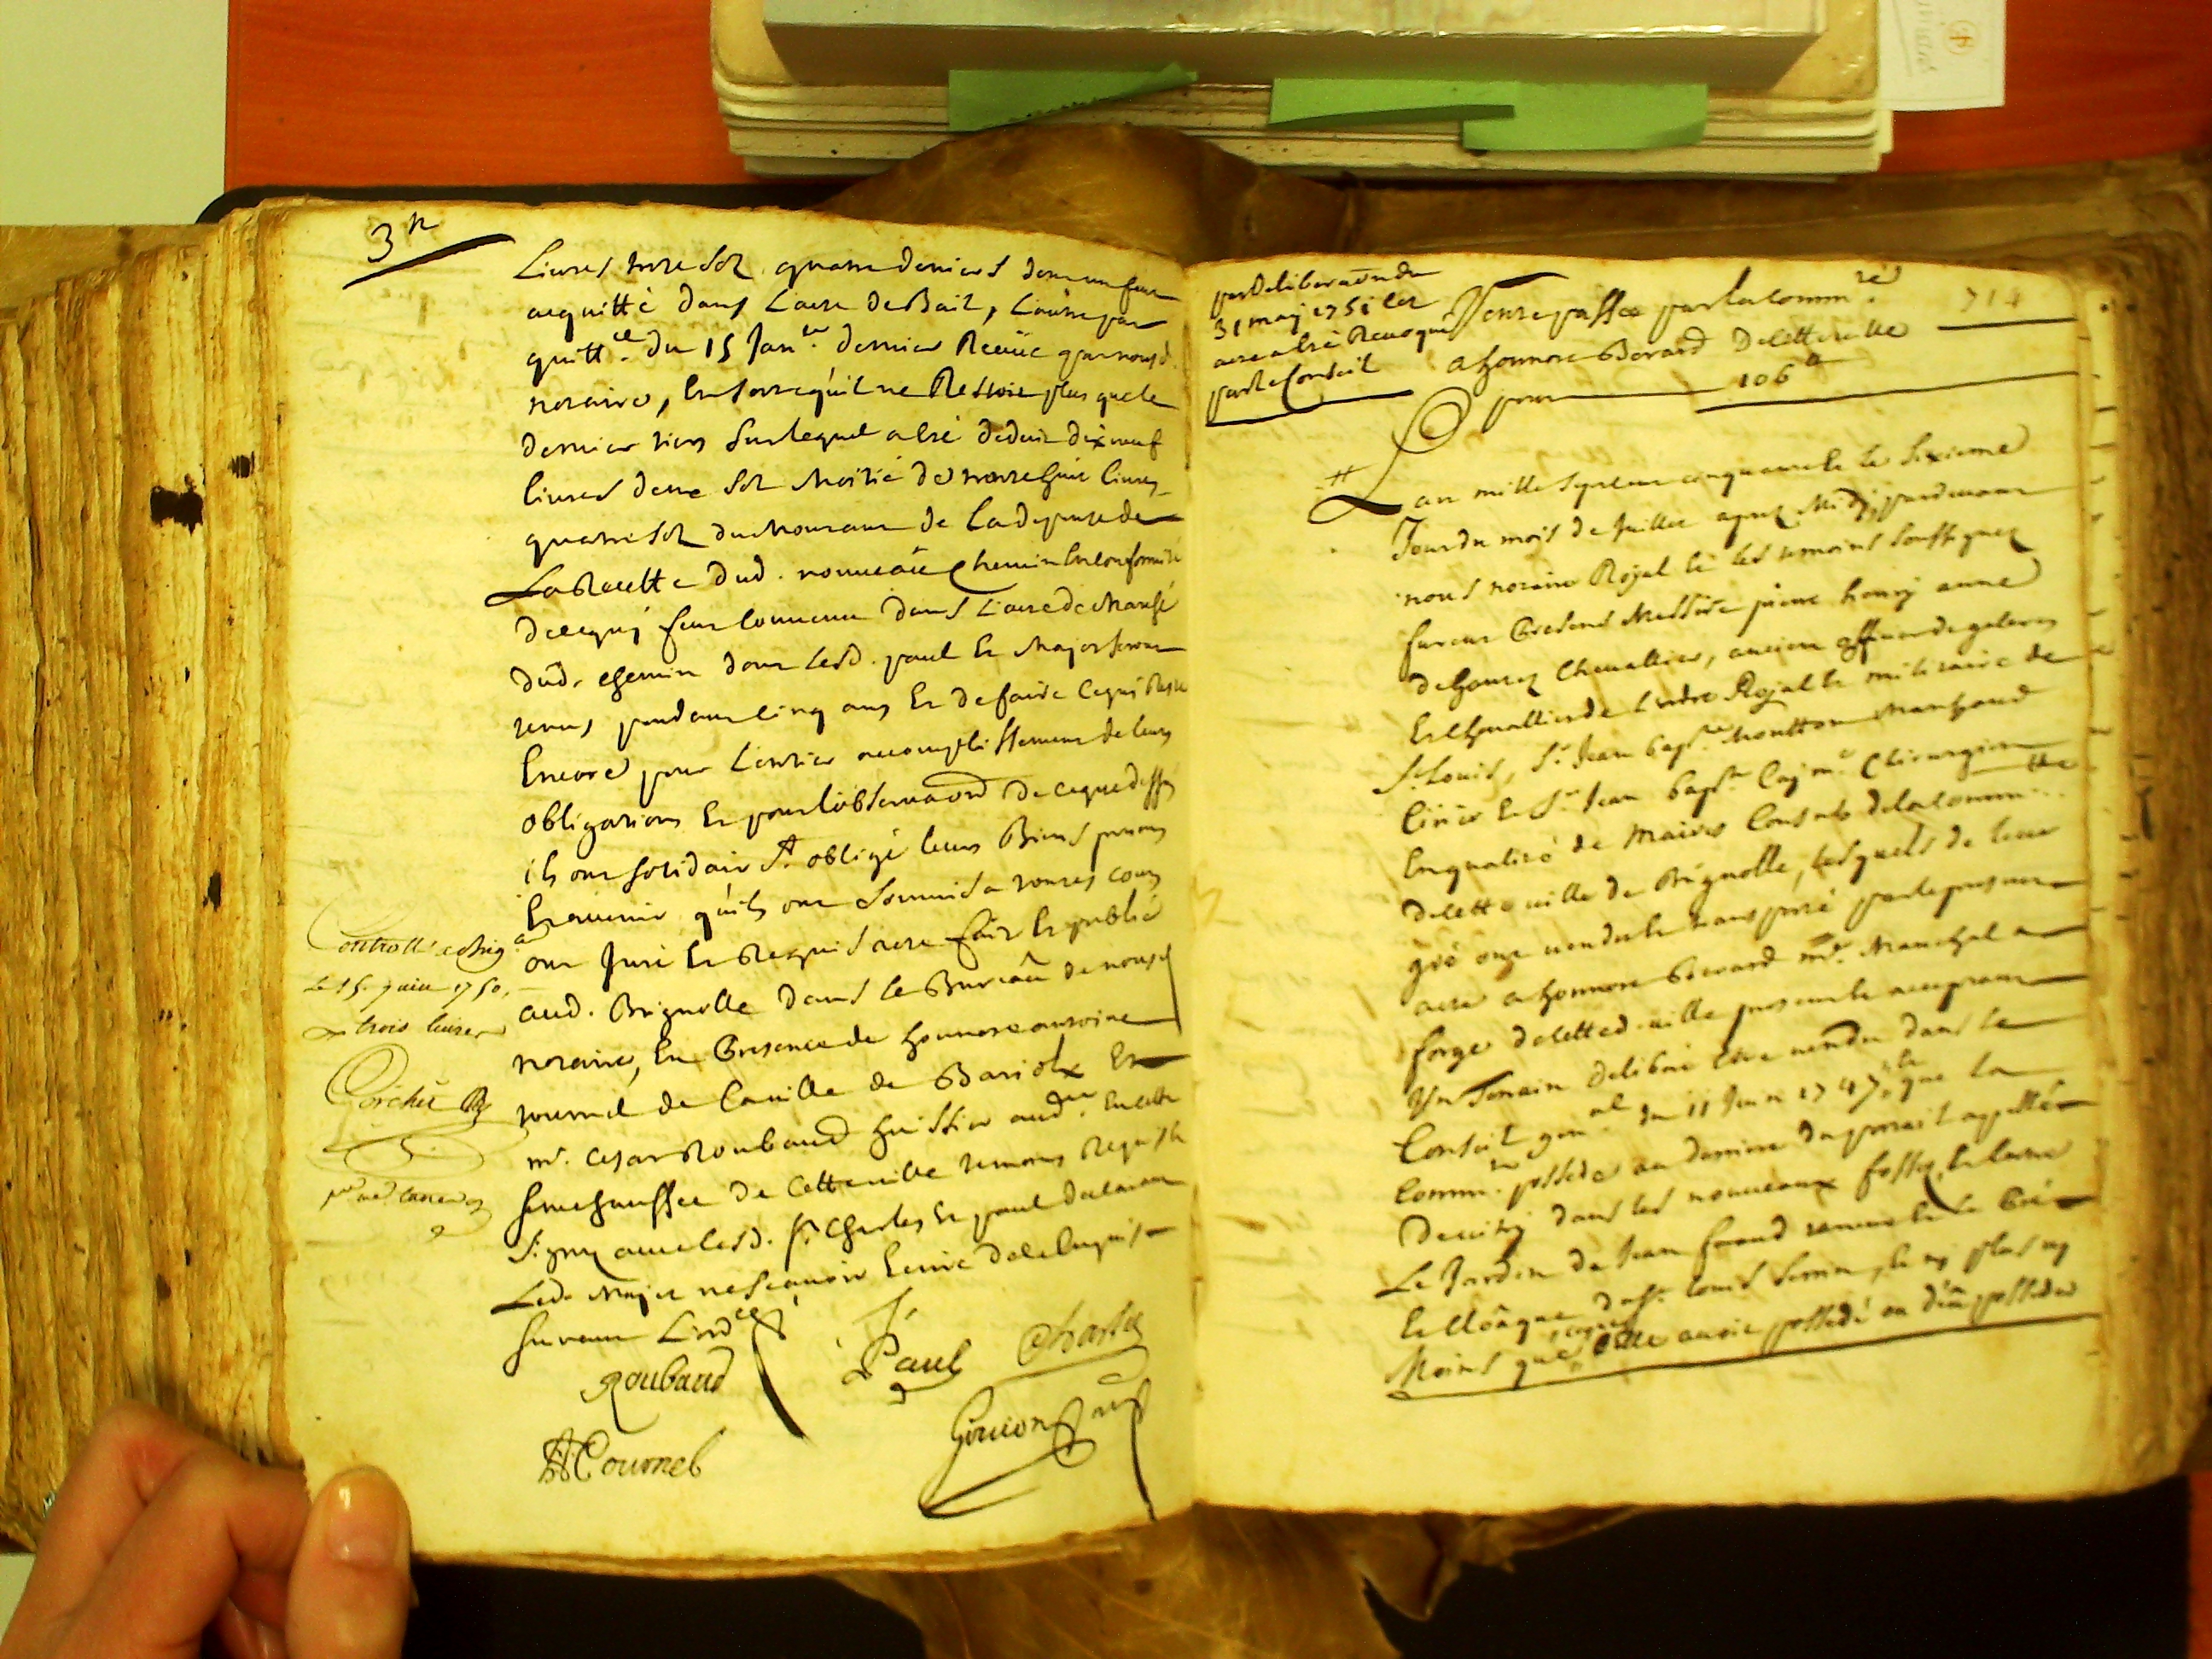 3#
Livres treze sols quatre deniers dont un feut
acquitté dans l'acte de Bail, L'autre par
quitt.ce du 15 Jan.er dernier Receüe par nousd.
notaire, En sorte qu'il ne Restoit plus que le
dernier tiers surlequel a été deduit dix neuf
livres deux sols Moitié de trente huit livres
quatre sols du Montant de la depense de
La Recette dud. nouveau Chemin En conformité
de ce qui feut convenu dans L'acte de
dud. chemin dont Lesd. paul Et Majer seront
tenus pendant cinq ans Et de faire ce qui Reste
Encore pour L'entier accomplissement de leurs
obligations Et pour l'observaõn de ce que dessus
ils ont solidair.t obligé leurs Biens presens
Et avenir qu'ils ont soumis a toutes cours
ont Juré Et Requis acte fait Et publié
aud. Brignolle dans le Bureau de nousd
notaire, En Presence de honnoré antoine
tournel de la ville de Bariols Et
m.e Cesar Roubaud huissier
senechaussee de cette ville temoins Requis Et
Signez avec lesd. S.r Charles Et paul
Led. Majer ne scavoir Ecrire de ce Enquis
suivant L'ord.ce
Roubaud
Paul
Charles
HA Tournel
Goujon
Controllé a Brig.
le 15 juin 1750.
trois livres
par deliberaõn du
31 may 1751 cet
acte a été Revoqué
par le Conseil
Vente passée par la comm.té
a honnoré Berard de cette ville
pour 106 #
714
L'an mille sept cens cinquante Et le sixieme
Jour du mois de Juillet apres Midy, pardevant
nous notaire Royal Et les temoins soussignez
furent Presens Messire pierre henry anne
de Chevallier, ancien officier de galeres
Et Chevallier de l'ordre Royal Et militaire de
S.t Louis, S.r Jean bap.te Moutton Marchand
Cirier Et S.r Jean bap.te m.e Chirurgien
En qualité de Maires Consuls de la comm.té
de cette ville de Brignolle, Lesquels de leur
gré ont vendu Et transporté par le present
acte a honnoré Berard m.e Marechal a
forge de cetted. ville present Et acceptant
Un Terrain deliberé Etre vendu dans le
Conseil gen.al du 11 Juin 1747 que la
Comm.té possede au derriere du
dans les nouveaux fossez, Entre
Le Jardin de Jean
Louis
Moins que lad. ville avoit possedé ou deu posseder